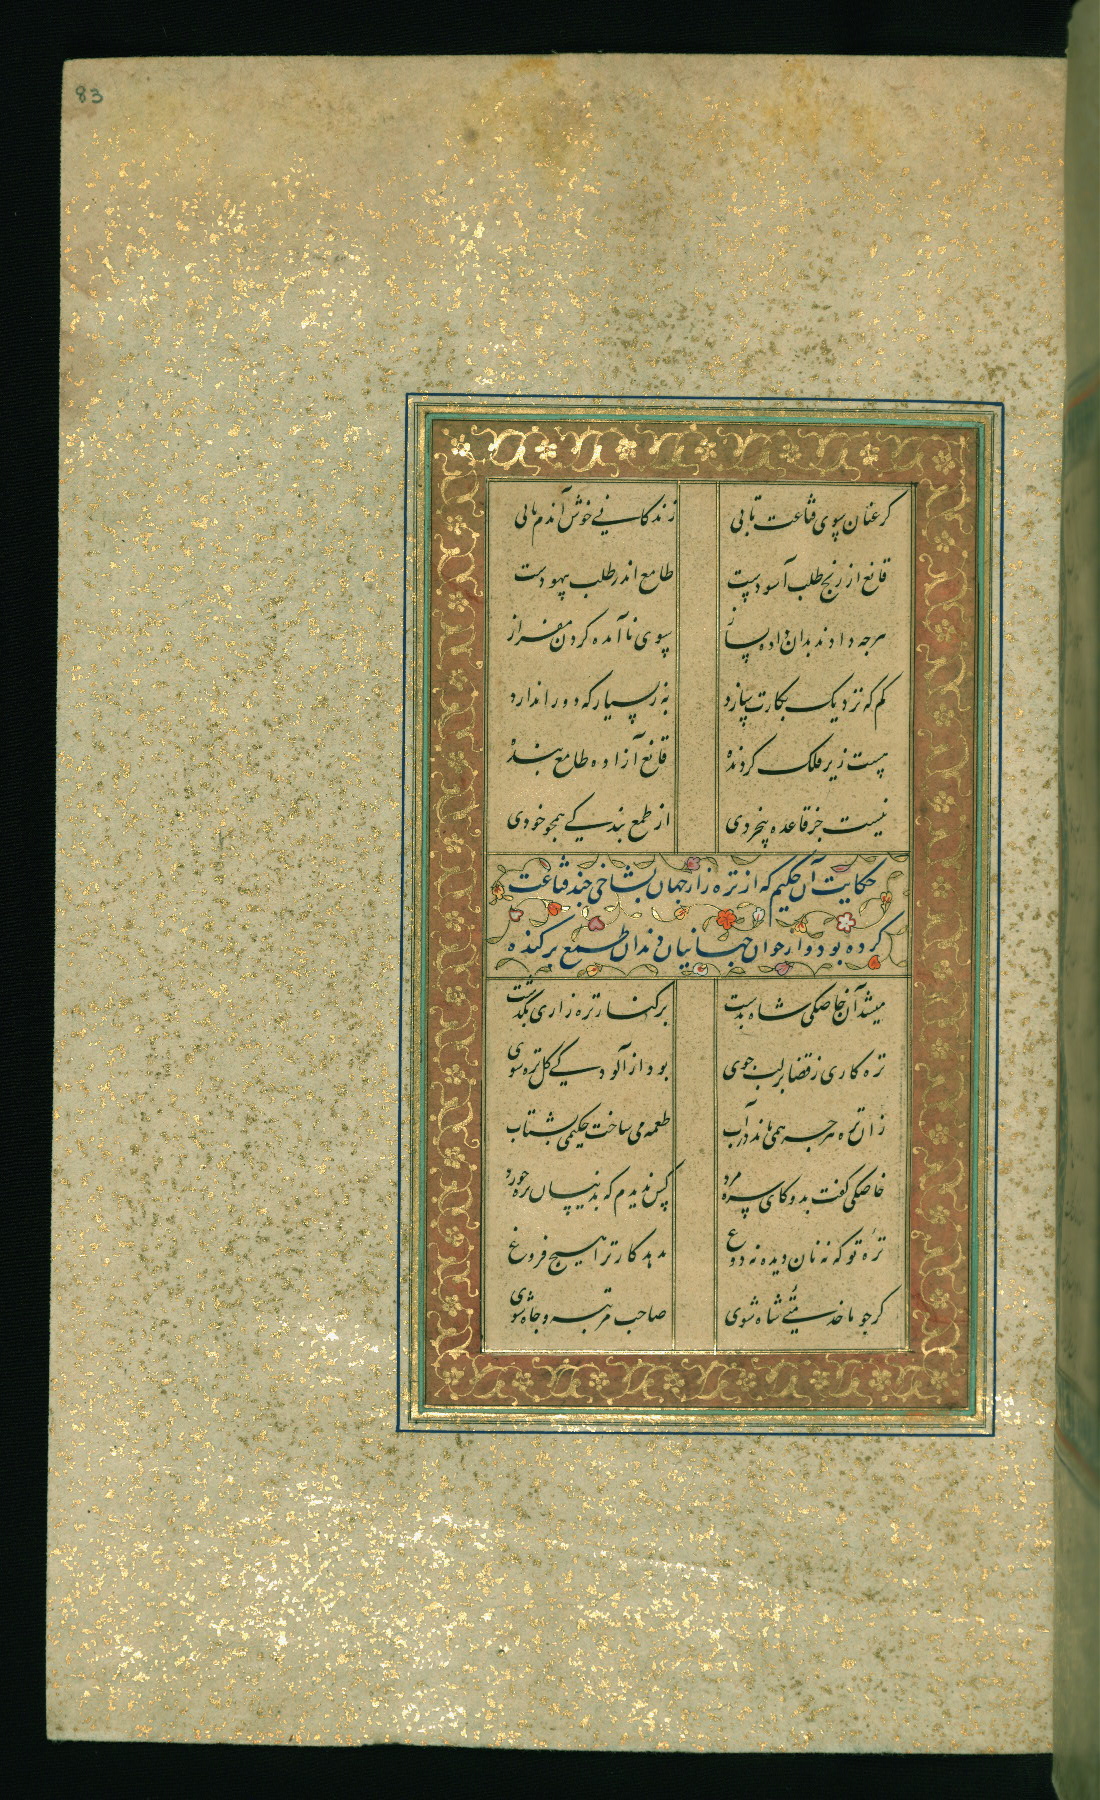 83
کر عنان سوی قناعت تابی زندکانی خوش آندم یابی
قانع از رنج طلب آسودست طامع اندر طلب بیهودست
هرجه دادند بدان داده بساز سوی ناآمده کردن مفراز
کم که نزدیک بکارت سازد به ز بسیار که دور اندازد
پست زیر فلک کردنده قانع آزاده و طامع بنده
نیست جز قاعده بیخردی از طمع بندکی همجو خودی
حکایت آن حکیم که از تره زار جهان بشاخی جند قناعت
کرده بود و از خوان جهانیان دندان طمع برکنده
میشد آن خاصکی شاه بدشت برکنار تره زاری بکذشت
تره کاری ز قضا بر لب جوی بود از آلودکی کل تره شوی
زان تره هرجه همی ماند در آب طعمه می ساخت حکیمی بشتاب
خاصکی کفت بدو کای سره مرد کس ندیدم که بدینسان تره خورد
ترۀ تو که نه نان دیده نه دوغ ندهد کار ترا هیج فروغ
کر جو ما خدمتئی شاه شوی صاحب مرتبه و جاه شوی